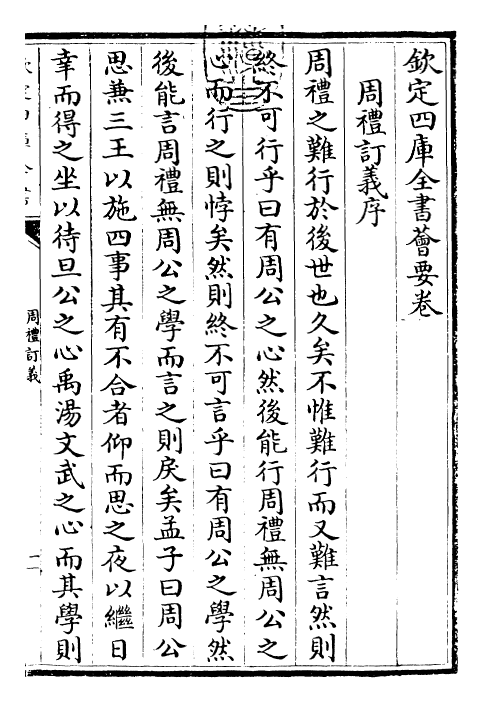 欽定四庫全書薈要卷
周禮訂義序
周禮之難行於後世也久矣不惟難行而又難言然則
終不可行乎曰有周公之心然後能行周禮無周公之
心而行之則悖矣然則終不可言乎曰有周公之學然
後能言周禮無周公之學而言之則戾矣孟子曰周公
思兼三王以施四事其有不合者仰而思之夜以繼日
幸而得之坐以待旦公之心禹湯文武之心而其學則
周禮訂義